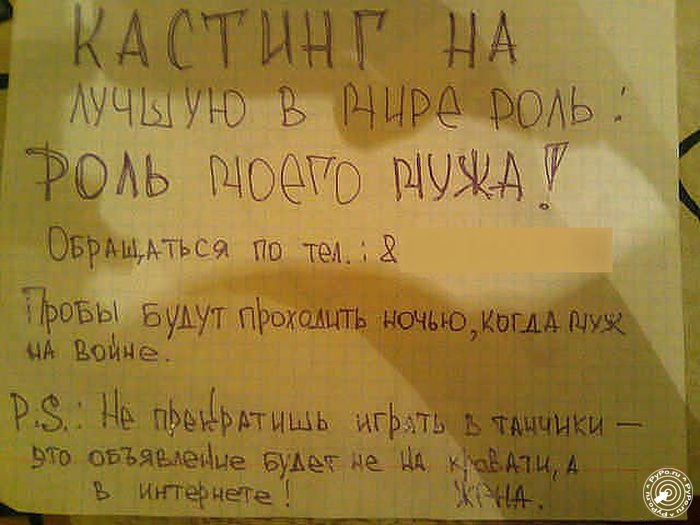 КАСТИНГ НА
ЛУЧШУЮ В МИРЕ РОЛЬ:
РОЛЬ МОЕГО МУЖА!
ОБРАЩАТЬСЯ ПО ТЕЛ.: 8
ПРОБЫ БУДУТ ПРОХОДИТЬ НОЧЬЮ, КОГДА МУЖ
НА ВОЙНЕ.
P.S.: НЕ ПРЕКРАТИШЬ ИГРАТЬ В ТАНЧИКИ —
ЭТО ОБЪЯВЛЕНИЕ БУДЕТ НЕ НА КРОВАТИ, А
В ИНТЕРНЕТЕ! ЖЕНА.
PyPo.ru PyPo.ru PyPo.ru